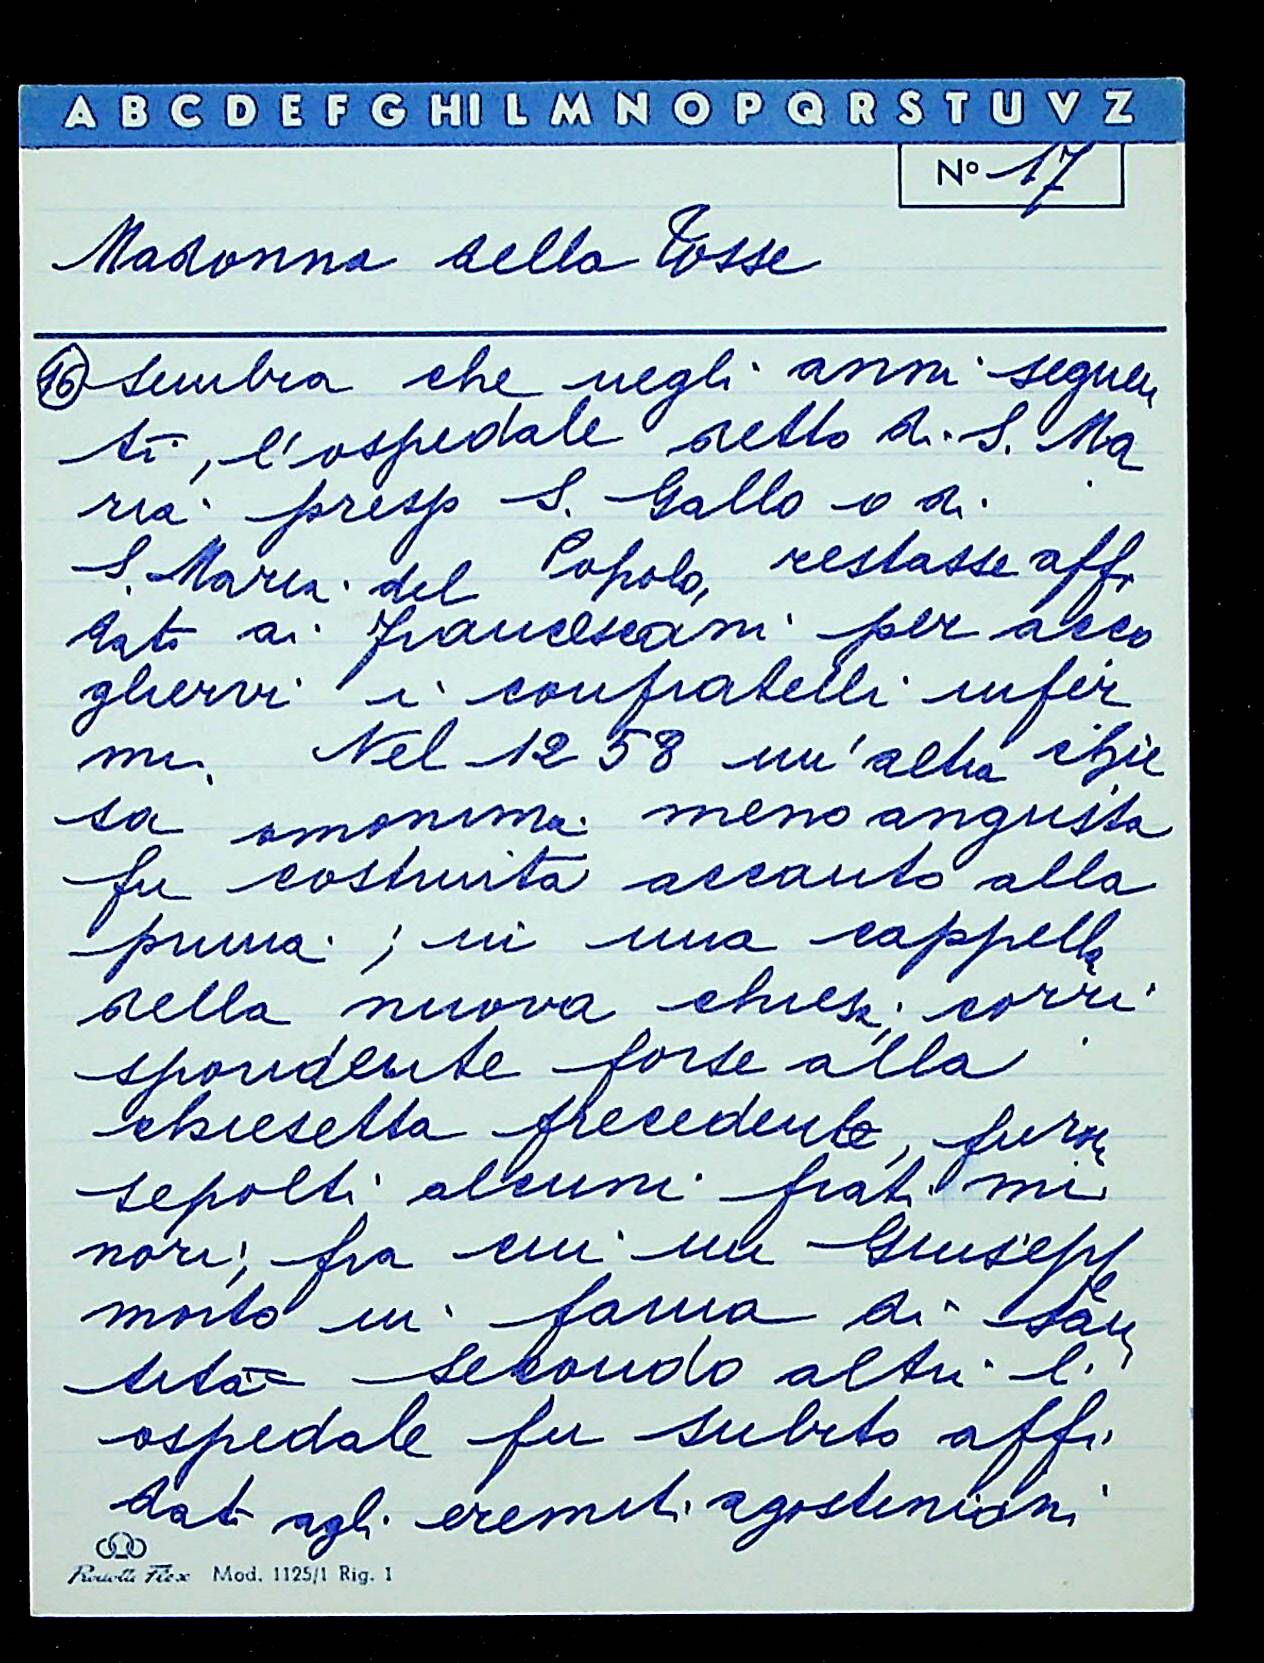 A B C D E F G H I L M N O P Q R S T U V Z
Nº 17
Madonna della Tosse
16 Sembra che negli anni seguen
ti, l'ospedale detto di S. Ma
ria presso S. Gallo o di
S. Maria del Popolo, restasse affi
dato ai francescani per acco
gliervi i confratelli infer
mi. Nel 1258 un'altra chie
sa omonima meno angusta
fu costruita accanto alla
prima; in una cappella
della nuova chiesa, corri
spondente forse alla
chiesetta precedente, furon
sepolti alcuni frati mi
nori, fra cui un Giuseppe
morto in fama di san
tità = secondo altri l'
ospedale fu subito affi
dato agli eremiti agostiniani
Mod. 1125/1 Rig. 1